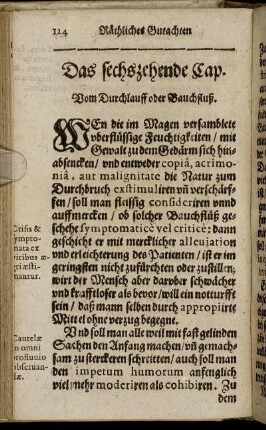 124 Räthliches Gutachten
Das sechszehende Cap.
Vom Durchlauff oder Bauchfluß.
WEn die im Magen versamblete
vberflüssige Feuchtigkeiten / mit
Gewalt zu dem Gedärm sich hin-
absencken / vnd entweder copiâ, acrimo-
niâ, aut malignitate die Natur zum
Durchbruch exstimuliren vñ verschärf-
fen / soll man fleissig consideriren vnnd
auffmercken / ob solcher Bauchfluß ge-
schehe symptomaticè vel criticè: dann
geschicht er mit mercklicher alleuiation
vnd erleichterung des Patienten / ist er im
geringsten nicht zufürchten oder zustillen;
wirt der Mensch aber darüber schwächer
vnd krafftloser als bevor / will ein notturfft
sein / daß mann selben durch appropiirte
Mittel ohne verzug begegne.
Vnd soll man alle weil mit fast gelinden
Sachen den Anfang machen / vñ gemach-
sam zu sterckeren schreitten / auch soll man
den impetum humorum anfenglich
viel mehr moderiren als cohibiren. Zu
dem
Crisis &
sympto-
nata ex
viribus æ-
gri æsti-
nantur.
Cautelæ
in omni
profluuio
observan-